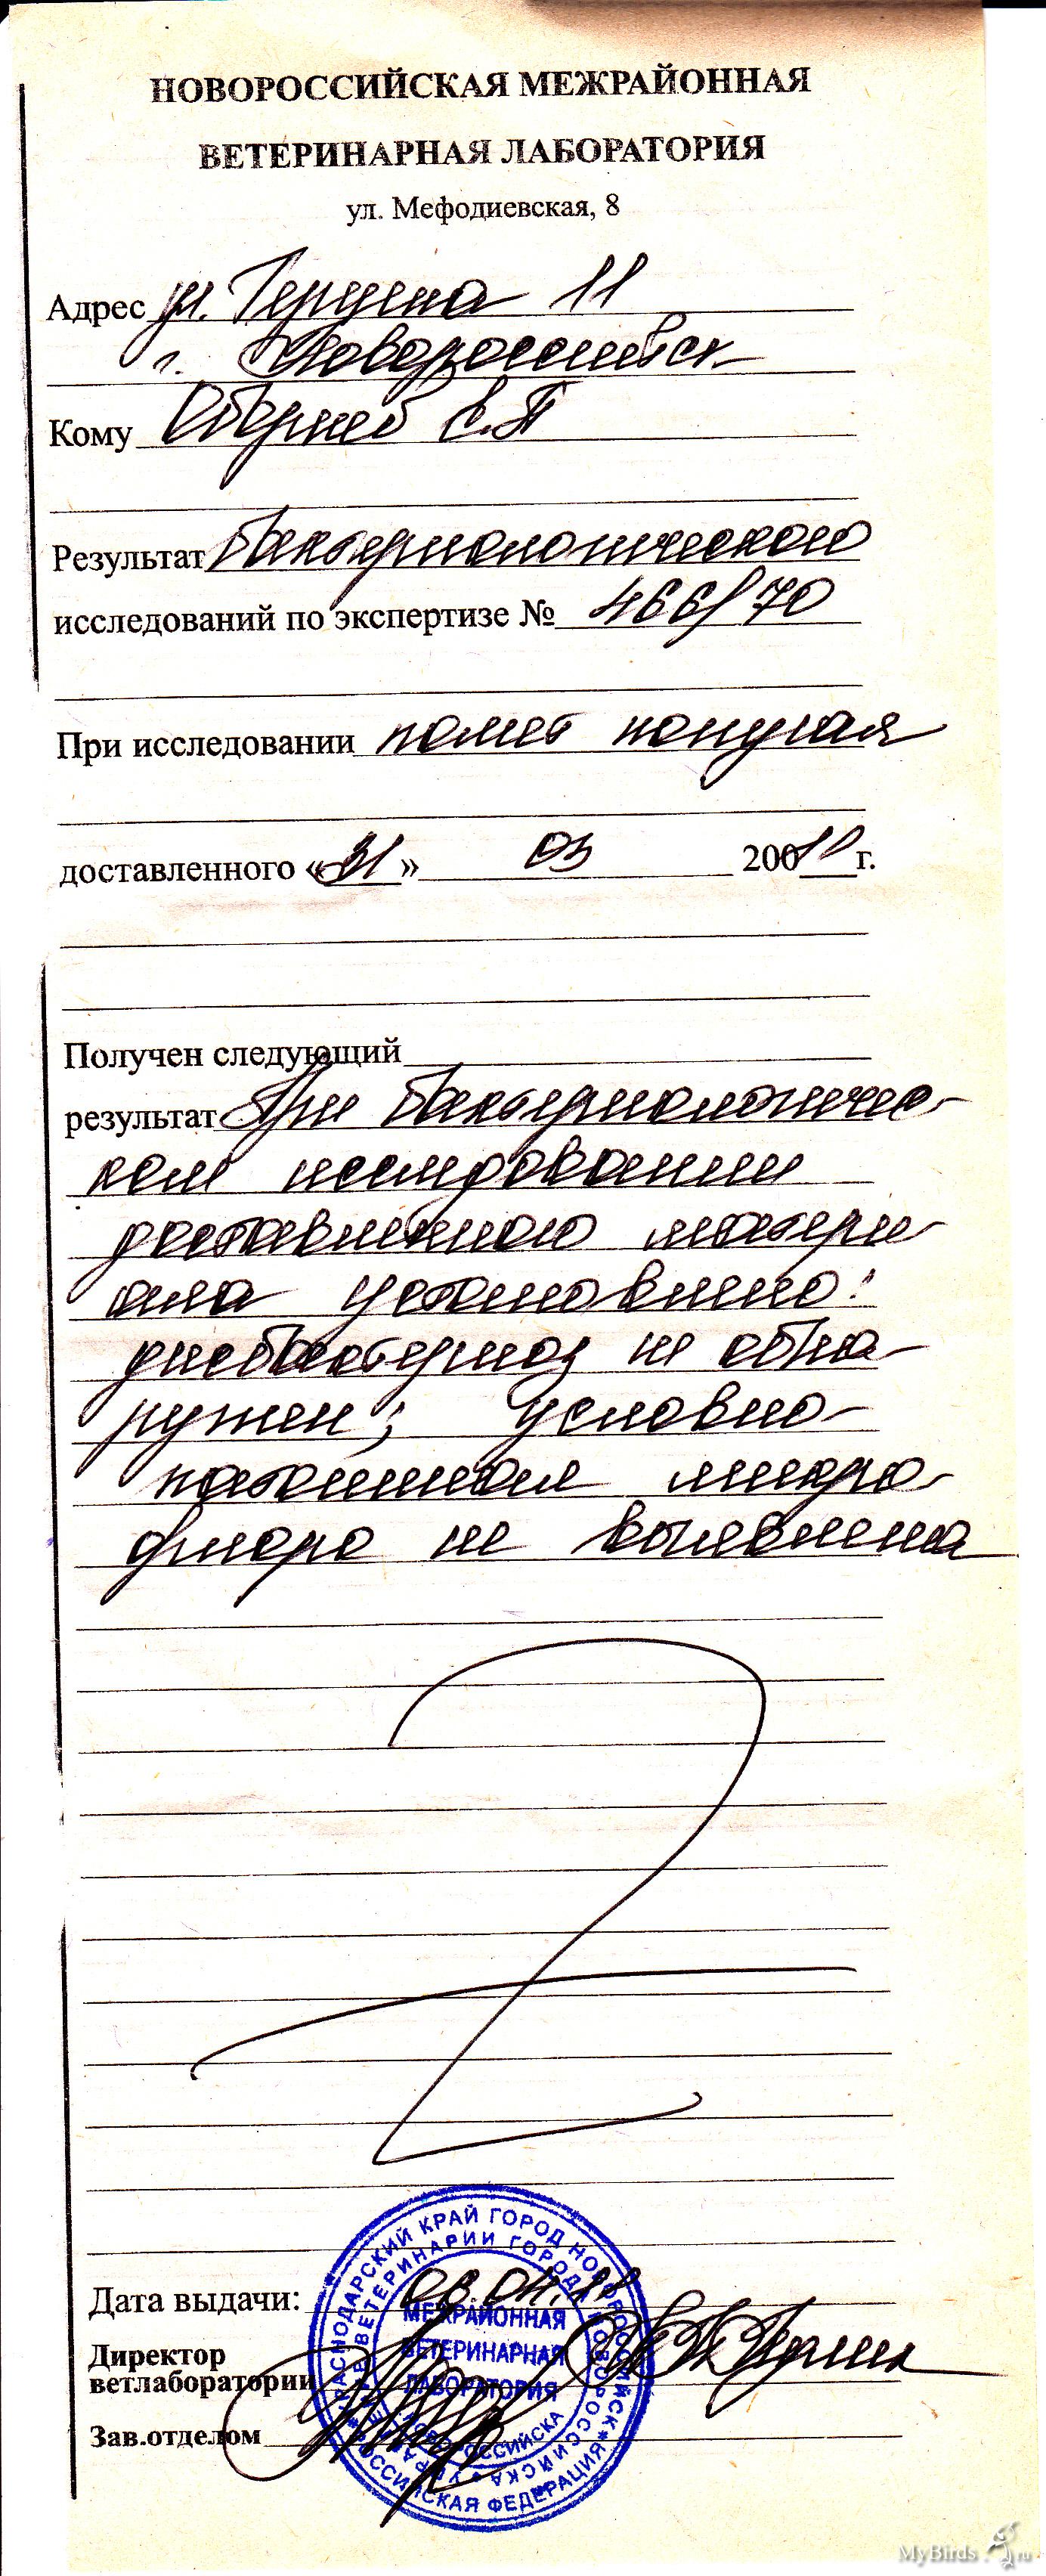 НОВОРОССИЙСКАЯ МЕЖРАЙОННАЯ
ВЕТЕРИНАРНАЯ ЛАБОРАТОРИЯ
ул. Мефодиевская, 8
Адрес ул. Герцена 11
г. Новороссийск
Кому Е.П
Результат бактериологического
исследований по экспертизе № 466/70
При исследовании помет попугая
доставленного «31» 03 200 г.
Получен следующий
результат При бактериологичес-
ком исследовании
доставленного матери-
ала установлено:
дисбактериоз не обна-
ружен; условно-
патогенная микро-
флора не выявлена
Дата выдачи: 08.04.11
Директор
ветлаборатории
Зав.отделом
КРАСНОДАРСКИЙ КРАЙ ГОРОД НОВОРОССИЙСК
РОССИЙСКАЯ ФЕДЕРАЦИЯ
УПРАВЛЕНИЕ ВЕТЕРИНАРИИ ГОРОДА НОВОРОССИЙСКА
МЕЖРАЙОННАЯ
ВЕТЕРИНАРНАЯ
ЛАБОРАТОРИЯ
НОВОРОССИЙСКА
MyBirds.ru